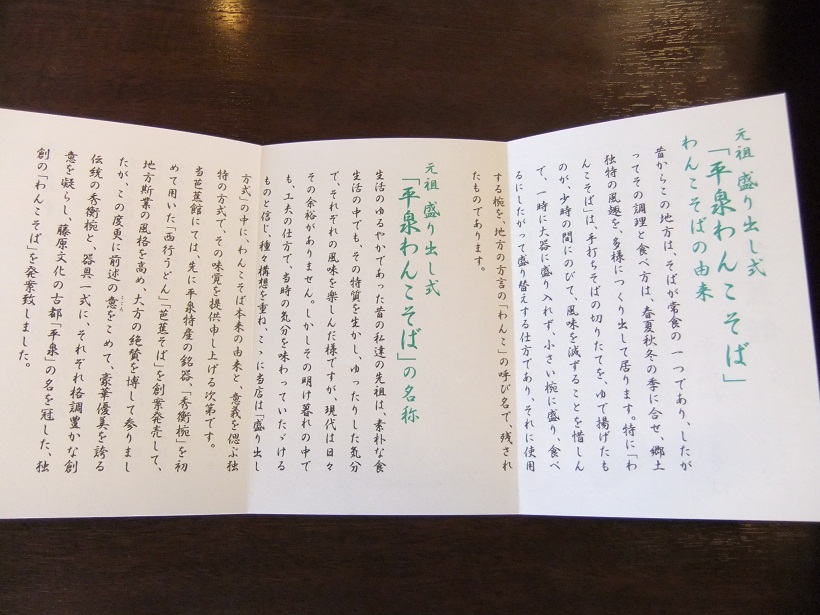 元祖 盛り出し式
「平泉わんこそば」
わんこそばの由来
昔からこの地方は、そばが常食の一つであり、したが
ってその調理と食べ方は、春夏秋冬の季に合せ、郷土
独特の風趣を、多様につくり出して居ります。特に「わ
んこそば」は、手打ちそばの切りたてを、ゆで揚げたも
のが、少時の間にのびて、風味を減ずることを惜しん
で、一時に大器に盛り入れず、小さい椀に盛り、食べ
るにしたがって盛り替えする仕方であり、それに使用
する椀を、地方の方言の「わんこ」の呼び名で、残され
たものであります。
元祖 盛り出し式
「平泉わんこそば」の名称
生活のゆるやかであった昔の私達の先祖は、素朴な食
生活の中でも、その特質を生かし、ゆったりした気分
で、それぞれの風味を楽しんだ様ですが、現代は日々
その余裕がありません。しかしその明け暮れの中で
も、工夫の仕方で、当時の気分を味わっていたゞける
ものと信じ、種々構想を重ね、こゝに当店は「盛り出し
方式」の中に、わんこそば本来の由来と、意義を偲ぶ独
特の方式で、その味覚を提供申し上げる次第です。
当芭蕉館にては、先に平泉特産の銘器、「秀衡椀」を初
めて用いた「西行うどん」「芭蕉そば」を創案発売して、
地方斯業の風格を高め、大方の絶賛を博して参りまし
たが、この度更に前述の意をこめて、豪華優美を誇る
伝統の秀衡椀と、器具一式に、それぞれ格調豊かな創
意を凝らし、藤原文化の古都「平泉」の名を冠した、独
創の「わんこそば」を発案致しました。